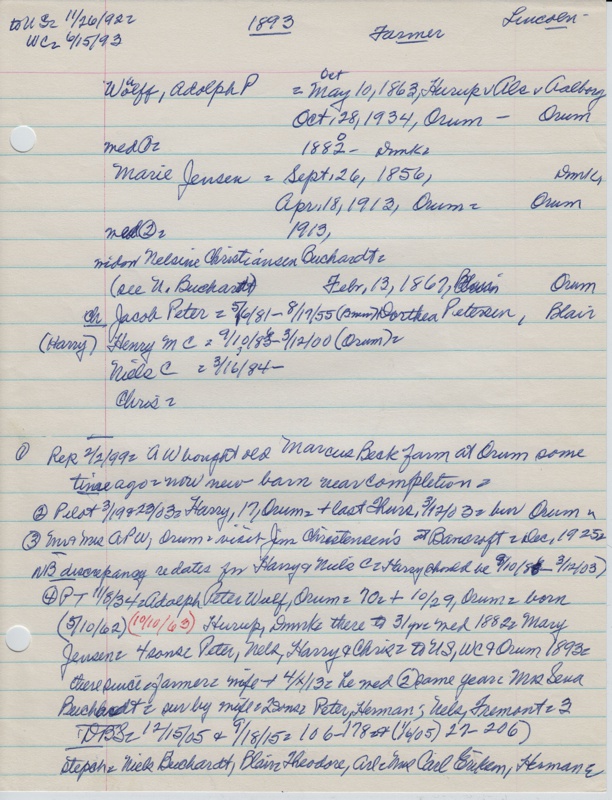 to US= 11/26/92= 1893 Farmer Lincoln-
WC= 6/15/93
Wolff, Adolph P = May 10, 1863, Hurup v Als v Aalborg
Oct
Oct 28, 1934, Orum - Orum
med ①= 1882- Dmk=
Marie Jensen = Sept, 26, 1856, Dmrk,
Apr. 18, 1913, Orum= Orum
med ②= 1913,
widow Nelsine Christiansen Buchardt=
(see N. Buchardt) Febr, 13, 1867, Orum
ch Jacob Peter = 5/6/81- 8/19/55 (Bmm) Dorthea Petersen, Blair
(Harry) Henry M C = 9/10/85- 3/12/00 (Orum)=
Niels C = 3/16/84-
Chris=
① Rep 2/2/99= A W bought old Marcus Beck farm at Orum some
time ago= now new barn near completion=
② Pilot 3/19&23/03= Harry, 17, Orum= + last Thurs, 3/12/03= bur Orum=
③ Mr&Mrs APW, Orum= visit Jim Christensen's at Bancroft= Dec, 1925=
NB discrepancy re dates for Harry & Niels C= Harry should be 9/10/86- 3/12/03)
④ PT 11/8/34= Adolph Peter Wulf, Orum= 70= + 10/29, Orum= born
(5/10/62) (10/10/63) Hurup, Dmrk= there to 31 yr= med 1882= Mary
Jensen= 4 sons= Peter, Nels, Harry & Chris= to US, WC & Orum 1893=
there since= farmer= wife + 4/2/13= he med ② same year= Mrs Sena
Buchardt= sur by wife= 2 sons= Peter, Herman; Nels, Fremont= 3
DBS= 12/15/05 & 9/18/15= 106-178 (1/6/05) 27-206)
stepch= Niels Buchardt, Blair= Theodore, Mrs Carl Eriksen, Herman=